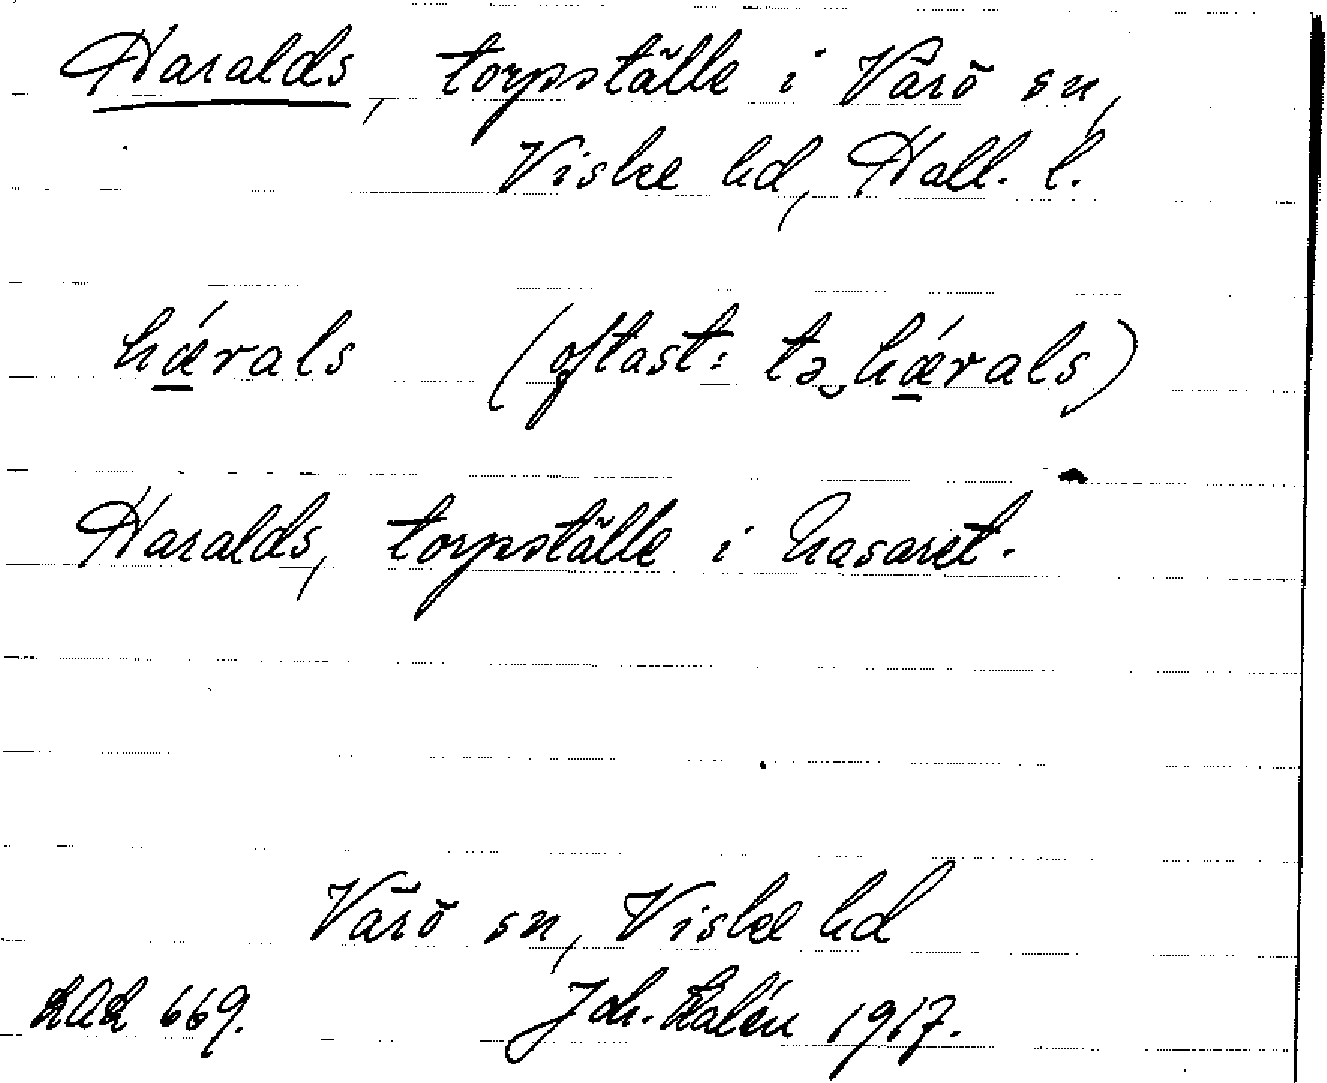 Haralds, torpställe i Värö sn,
Viske hd, Hall. l.
hǽrals (oftast: tə‿hǽrals)
Haralds, torpställe i Nasaret.
Värö sn, Viske hd
669. Joh. Kalén 1917.